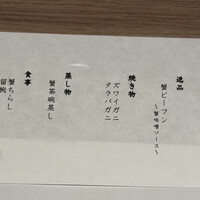 逸品
蟹ビーフン
～蟹味噌ソース～
焼き物
ズワイガニ
タラバガニ
蒸し物
蟹茶碗蒸し
食事
蟹ちらし
留椀